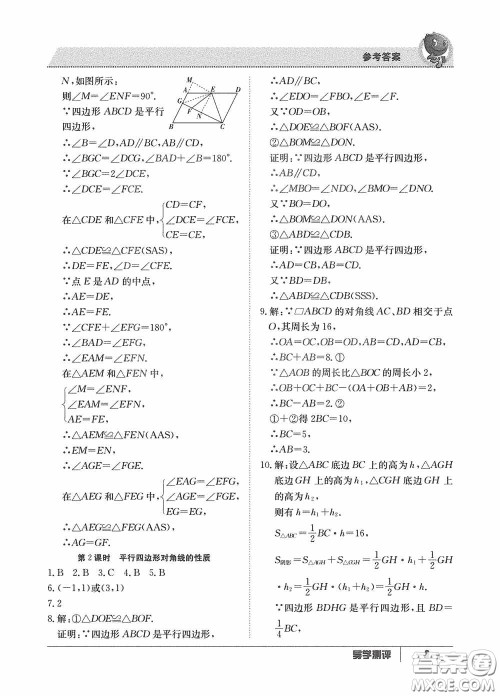 参考答案
N,如图所示:
则∠M=∠ENF=90°.
∵四边形 ABCD 是平行
四边形,
∴∠B=∠D,AD∥BC,AB∥CD,
∴∠BGC=∠DCG,∠BAD+∠B=180°.
∵∠BGC=2∠DCE,
∴∠DCE=∠FCE.
在△CDE 和△CFE 中,
CD=CF,
∠DCE=∠FCE,
CE=CE,
∴△CDE≌△CFE(SAS),
∴DE=FE,∠D=∠CFE.
∵点 E 是 AD 的中点,
∴AE=DE,
∴AE=FE.
∵∠CFE+∠EFG=180°,
∴∠BAD=∠EFG,
∴∠EAM=∠EFN.
在△AEM 和△FEN 中,
∠M=∠ENF,
∠EAM=∠EFN,
AE=FE,
∴△AEM≌△FEN(AAS),
∴EM=EN,
∴∠AGE=∠FGE.
在△AEG 和△FEG 中,
∠EAG=∠EFG,
∠AGE=∠FGE,
EG=EG,
∴△AEG≌△FEG(AAS),
∴AG=GF.
第 2 课时 平行四边形对角线的性质
1.B 2.B 3.C 4.B 5.B
6.(-1,1)或(3,1)
7.2
8.解:①△DOE≌△BOF.
证明:∵四边形 ABCD 是平行四边形,
∴AD∥BC,
∴∠EDO=∠FBO,∠E=∠F.
又∵OD=OB,
∴△DOE≌△BOF(AAS).
②△BOM≌△DON.
证明:∵四边形 ABCD 是平行四边形,
∴AB∥CD,
∴∠MBO=∠NDO,∠BMO=∠DNO.
又∵BO=DO,
∴△BOM≌△DON(AAS).
③△ABD≌△CDB.
证明:∵四边形 ABCD 是平行四边形,
∴AD=CB,AB=CD.
又∵BD=DB,
∴△ABD≌△CDB(SSS).
9.解:∵□ABCD 的对角线 AC、BD 相交于点
O,其周长为 16,
∴OA=OC,OB=OD,AB=CD,AD=BC,
∴BC+AB=8.①
∵△AOB 的周长比△BOC 的周长小 2,
∴OB+OC+BC-(OA+OB+AB)=2,
∴BC-AB=2.②
①+②得 2BC=10,
∴BC=5,
∴AB=3.
10.解:设△ABC 底边 BC 上的高为 h,△AGH
底边 GH 上的高为 h₁,△CGH 底边 GH 上
的高为 h₂,
则有 h=h₁+h₂.
S△ABC=1/2 BC·h=16,
S阴影=S△AGH+S△CGH=1/2 GH·h₁+1/2 GH
·h₂=1/2 GH·(h₁+h₂)=1/2 GH·h.
∵四边形 BDHG 是平行四边形,且 BD=
1/4 BC,
导学测评